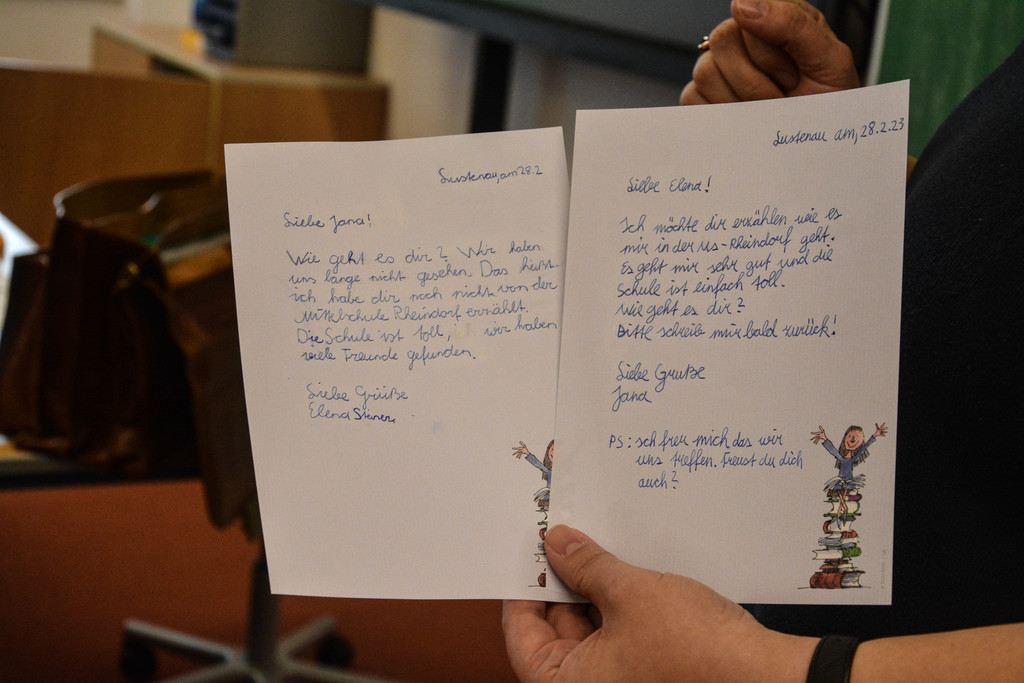 Lustenau, am 28.2
Liebe Jana!
Wie geht es dir? Wir haben
uns lange nicht gesehen. Das heißt
ich habe dir noch nicht von der
Mittelschule Rheindorf erzählt.
Die Schule ist toll, wir haben
viele Freunde gefunden.
Liebe Grüße
Elena Steiner
Lustenau am, 28.2.23
Liebe Elena!
Ich möchte dir erzählen wie es
mir in der Ms-Rheindorf geht.
Es geht mir sehr gut und die
Schule ist einfach toll.
Wie geht es dir?
Bitte schreib mir bald zurück!
Liebe Gruße
Jana
PS: Ich freu mich das wir
uns treffen. Freust du dich
auch?